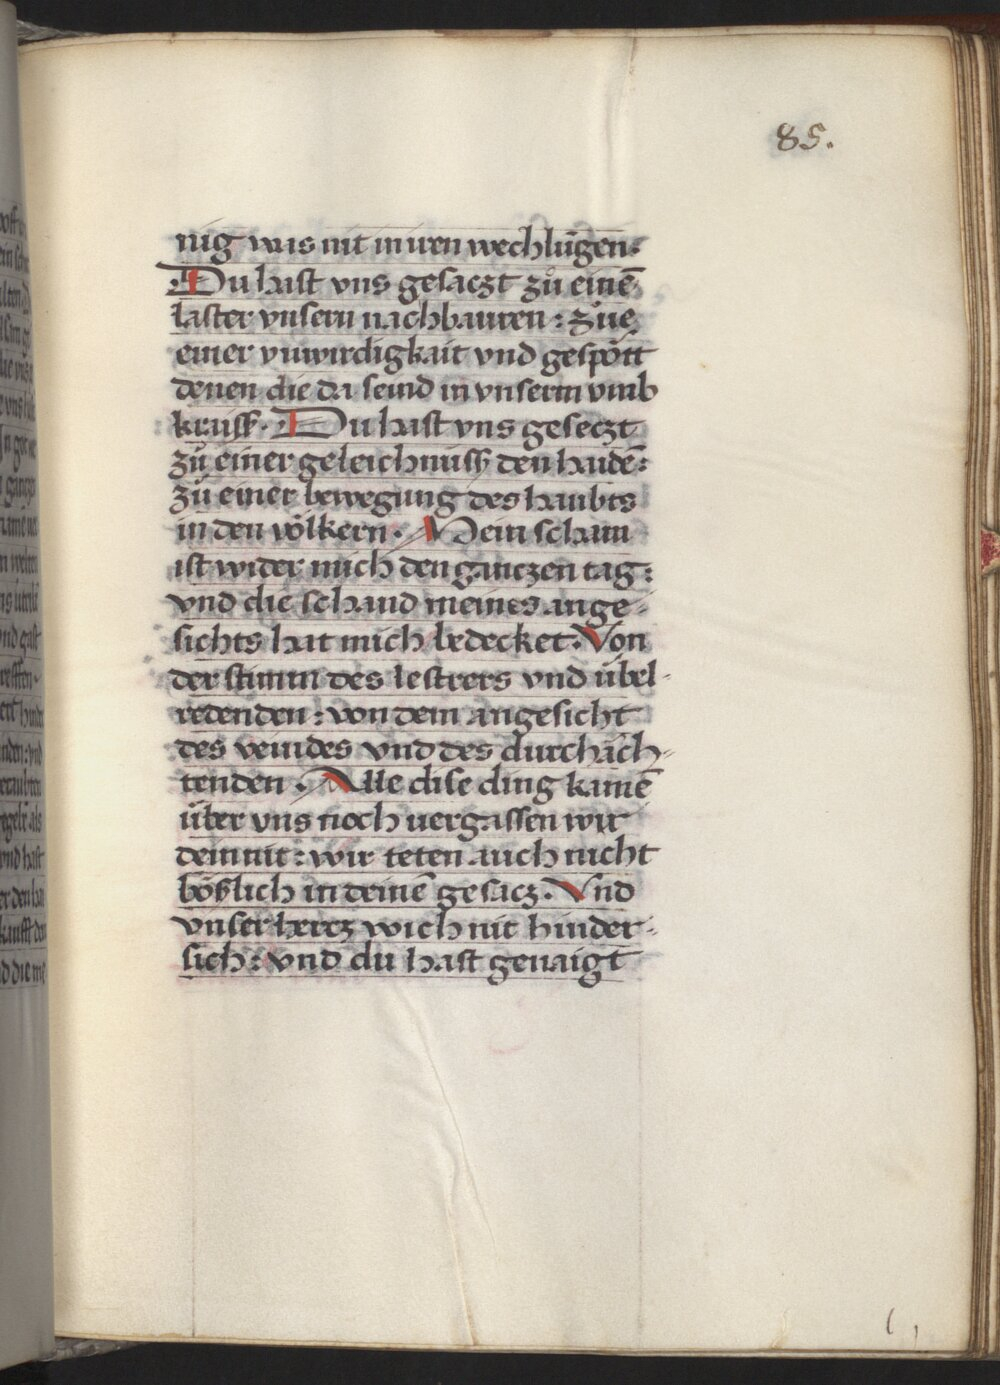 85.
nig was nit in iren wechslungen:
Du hast vns gesaczt zů einē
laster vnsern nachbauren: zůe
einer vnwirdigkait vnd gespött
denen die da seind in vnserm vmb
kraiss. Du hast vns geseczt
zů einer geleichnüss den haidē:
zů einer bewegung des haubts
in den völkern. Mein scham
ist wider mich den ganczen tag:
vnd die schand meines ange-
sichts hat mich bedecket. Von
der stimm des lestrers vnd übel-
redenden: von dem angesicht
des veindes vnd des durchäch-
tenden. Alle dise ding kamē
über vns noch uergassen wir
dein nit: wir teten auch nicht
bößlich in deinē gesacz. Vnd
vnser hercz wich nit hinder-
sich: vnd du hast genaigt